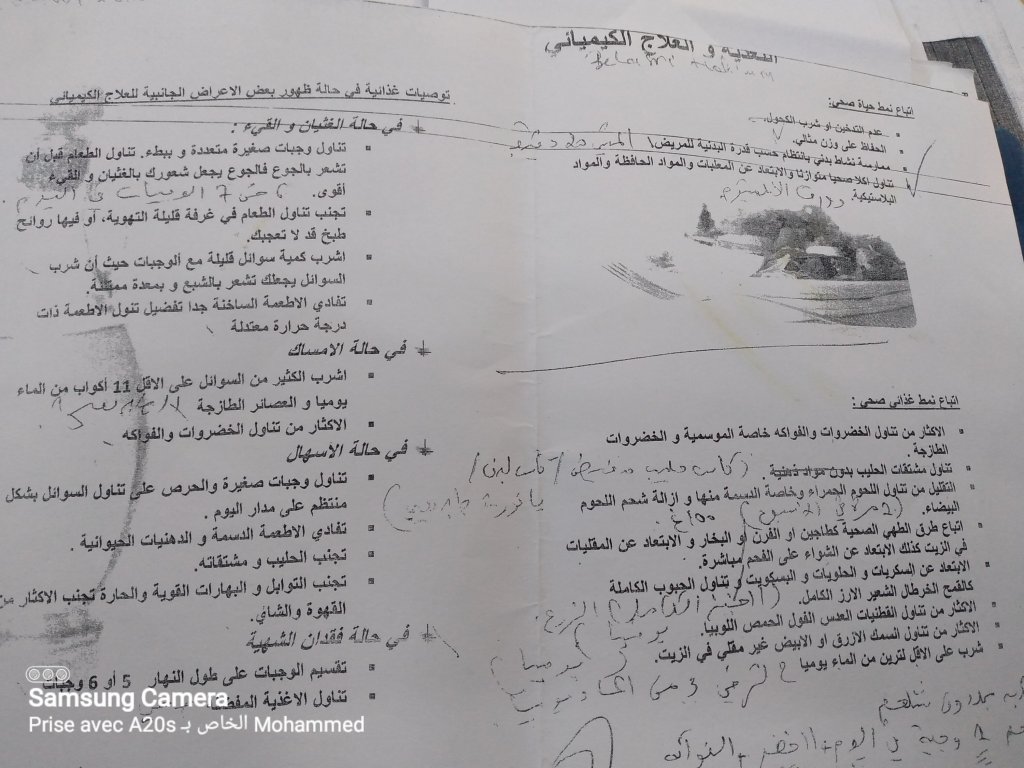 التغذية و العلاج الكيميائي
اتباع نمط حياة صحي:
عدم التدخين او شرب الكحول.
الحفاظ على وزن مثالي.
ممارسة نشاط بدني بانتظام حسب قدرة البدنية للمريض\
تناول اكلا صحيا متوازنا والابتعاد عن المعلبات والمواد الحافظة والمواد
البلاستيكية
اتباع نمط غذائي صحي :
الاكثار من تناول الخضروات والفواكه خاصة الموسمية و الخضروات
الطازجة.
تناول مشتقات الحليب بدون مواد ذهنية
التقليل من تناول اللحوم الحمراء وخاصة الدسمة منها و ازالة شحم اللحوم
البيضاء.
اتباع طرق الطهي الصحية كطاجين او الفرن او البخار و الابتعاد عن المقليات
في الزيت كذلك الابتعاد عن الشواء على الفحم مباشرة.
الابتعاد عن السكريات و الحلويات و البسكويت و تناول الحبوب الكاملة
كالقمح الخرطال الشعير الارز الكامل.
الاكثار من تناول القطنيات العدس الفول الحمص اللوبيا.
الاكثار من تناول السمك الازرق او الابيض غير مقلي في الزيت.
شرب على الاقل لترين من الماء يوميا
توصيات غذائية في حالة ظهور بعض الاعراض الجانبية للعلاج الكيميائي
في حالة الغثيان و القيء :
تناول وجبات صغيرة متعددة و ببطء. تناول الطعام قبل أن
تشعر بالجوع فالجوع يجعل شعورك بالغثيان و القيء
أقوى.
تجنب تناول الطعام في غرفة قليلة التهوية، أو فيها روائح
طبخ قد لا تعجبك.
اشرب كمية سوائل قليلة مع الوجبات حيث أن شرب
السوائل يجعلك تشعر بالشبع و بمعدة ممتلئة.
تفادي الاطعمة الساخنة جدا تفضيل تنول الاطعمة ذات
درجة حرارة معتدلة
في حالة الامساك
اشرب الكثير من السوائل على الاقل 11 أكواب من الماء
يوميا و العصائر الطازجة
الاكثار من تناول الخضروات والفواكه
في حالة الاسهال
تناول وجبات صغيرة والحرص على تناول السوائل بشكل
منتظم على مدار اليوم .
تفادي الاطعمة الدسمة و الدهنيات الحيوانية .
تجنب الحليب و مشتقاته.
تجنب التوابل و البهارات القوية والحارة تجنب الاكثار من
القهوة والشاي.
في حالة فقدان الشهية
تقسيم الوجبات على طول النهار 5 أو 6 وجبات
تناول الاغذية
Samsung Camera
Prise avec A20s الخاص بـ Mohammed